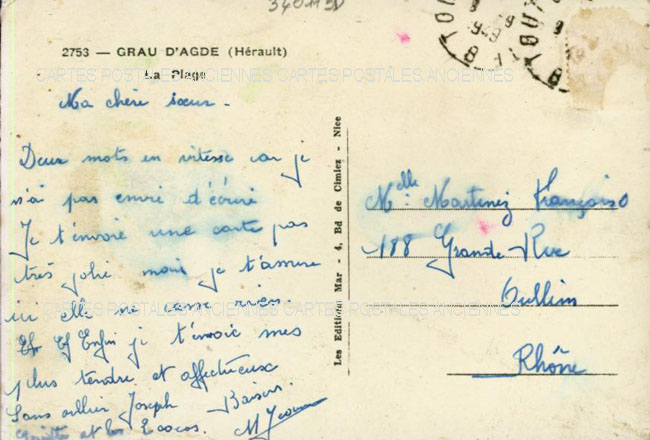 340113D
2753 — GRAU D'AGDE (Hérault)
La Plage
CARTES POSTALES ANCIENNES CARTES POSTALES ANCIENNES
Ma chère soeur.
Deux mots en vitesse car je
n'ai pas envie d'écrire
Je t'envoie une carte pas
très jolie mais je t'assure
ici elle ne casse rien.
Ef Ef Enfin je t'envoie mes
plus tendre et affectueux
Sans oublier Joseph Baisers.
et les Cocos. M
Les Editions Mar - 4, Bd de Cimiez - Nice
Melle Martinez Françoise
188 Grande Rue
Oullins
Rhône
CARTES POSTALES ANCIENNES CARTES POSTALES ANCIENNES